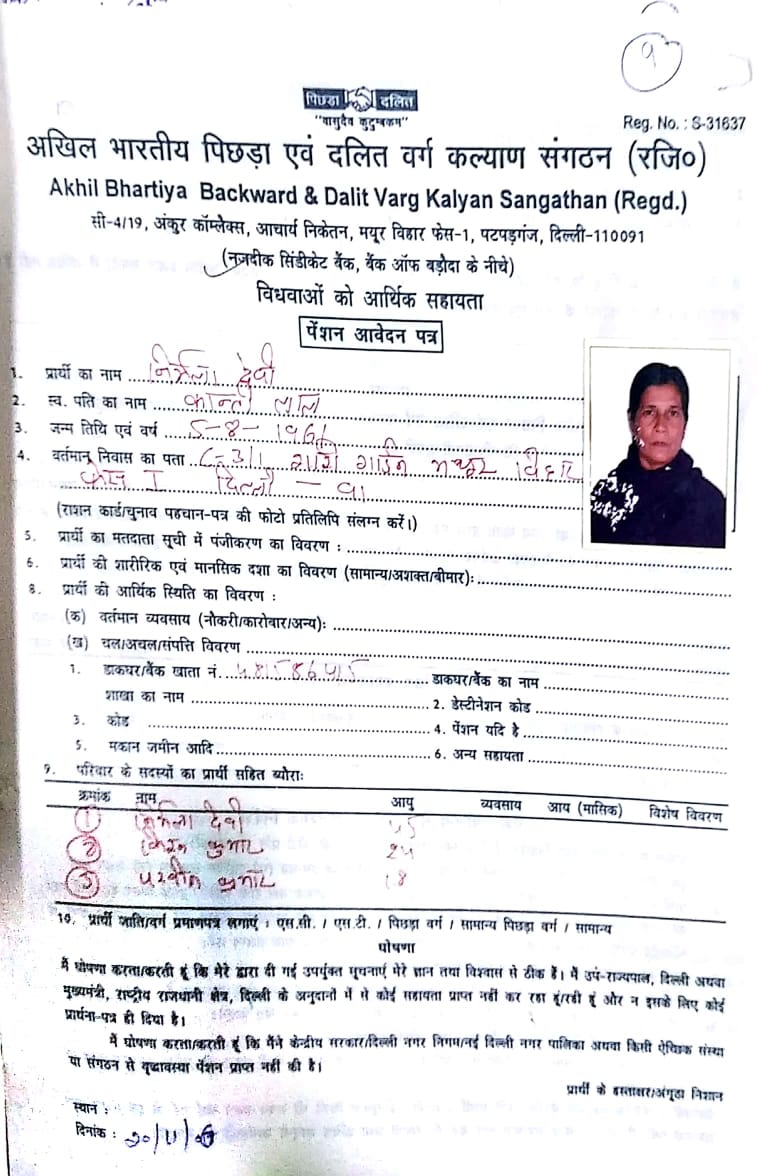 9
पिछड़ा दलित
"वासुदैव कुटुम्बकम"
Reg. No. : S-31637
अखिल भारतीय पिछड़ा एवं दलित वर्ग कल्याण संगठन (रजि०)
Akhil Bhartiya Backward & Dalit Varg Kalyan Sangathan (Regd.)
सी-4/19, अंकुर कॉम्लैक्स, आचार्य निकेतन, मयूर विहार फेस-1, पटपड़गंज, दिल्ली-110091
(नज़दीक सिंडीकेट बैंक, बैंक ऑफ बड़ौदा के नीचे)
विधवाओं को आर्थिक सहायता
पेंशन आवेदन पत्र
1. प्रार्थी का नाम निर्मला देवी
2. स्व. पति का नाम कान्ती लाल
3. जन्म तिथि एवं वर्ष 5-8-1961
4. वर्तमान निवास का पता C-311 शशि गार्डन मयूर विहार
फेस I दिल्ली - 91
(राशन कार्ड/चुनाव पहचान-पत्र की फोटो प्रतिलिपि संलग्न करें।)
5. प्रार्थी का मतदाता सूची में पंजीकरण का विवरण :
6. प्रार्थी की शारीरिक एवं मानसिक दशा का विवरण (सामान्य/अशक्त/बीमार):
8. प्रार्थी की आर्थिक स्थिति का विवरण :
(क) वर्तमान व्यवसाय (नौकरी/कारोबार/अन्य):
(ख) चल/अचल/संपत्ति विवरण
1. डाकघर/बैंक खाता नं. डाकघर/बैंक का नाम
शाखा का नाम 2. डेस्टीनेशन कोड
3. कोड 4. पेंशन यदि है
5. मकान जमीन आदि 6. अन्य सहायता
9. परिवार के सदस्यों का प्रार्थी सहित ब्यौरा:
क्रमांक नाम आयु व्यवसाय आय (मासिक) विशेष विवरण
1 निर्मला देवी 45
2 कुमार 24
3 परवीन कुमार 18
10. प्रार्थी जाति/वर्ग प्रमाणपत्र लगाएं : एस.सी. / एस.टी. / पिछड़ा वर्ग / सामान्य पिछड़ा वर्ग / सामान्य
घोषणा
मैं घोषणा करता/करती हूं कि मेरे द्वारा दी गई उपर्युक्त सूचनाएं मेरे ज्ञान तथा विश्वास से ठीक है। मैं उप-राज्यपाल, दिल्ली अथवा
मुख्यमंत्री, राष्ट्रीय राजधानी क्षेत्र, दिल्ली के अनुदानों में से कोई सहायता प्राप्त नहीं कर रहा हूं/रही हूं और न इसके लिए कोई
प्रार्थना-पत्र ही दिया है।
मैं घोषणा करता/करती हूं कि मैंने केन्द्रीय सरकार/दिल्ली नगर निगम/नई दिल्ली नगर पालिका अथवा किसी ऐच्छिक संस्था
या संगठन से वृद्धावस्था पेंशन प्राप्त नहीं की है।
प्रार्थी के हस्ताक्षर/अंगूठा निशान
स्थान :
दिनांक : 20/11/06